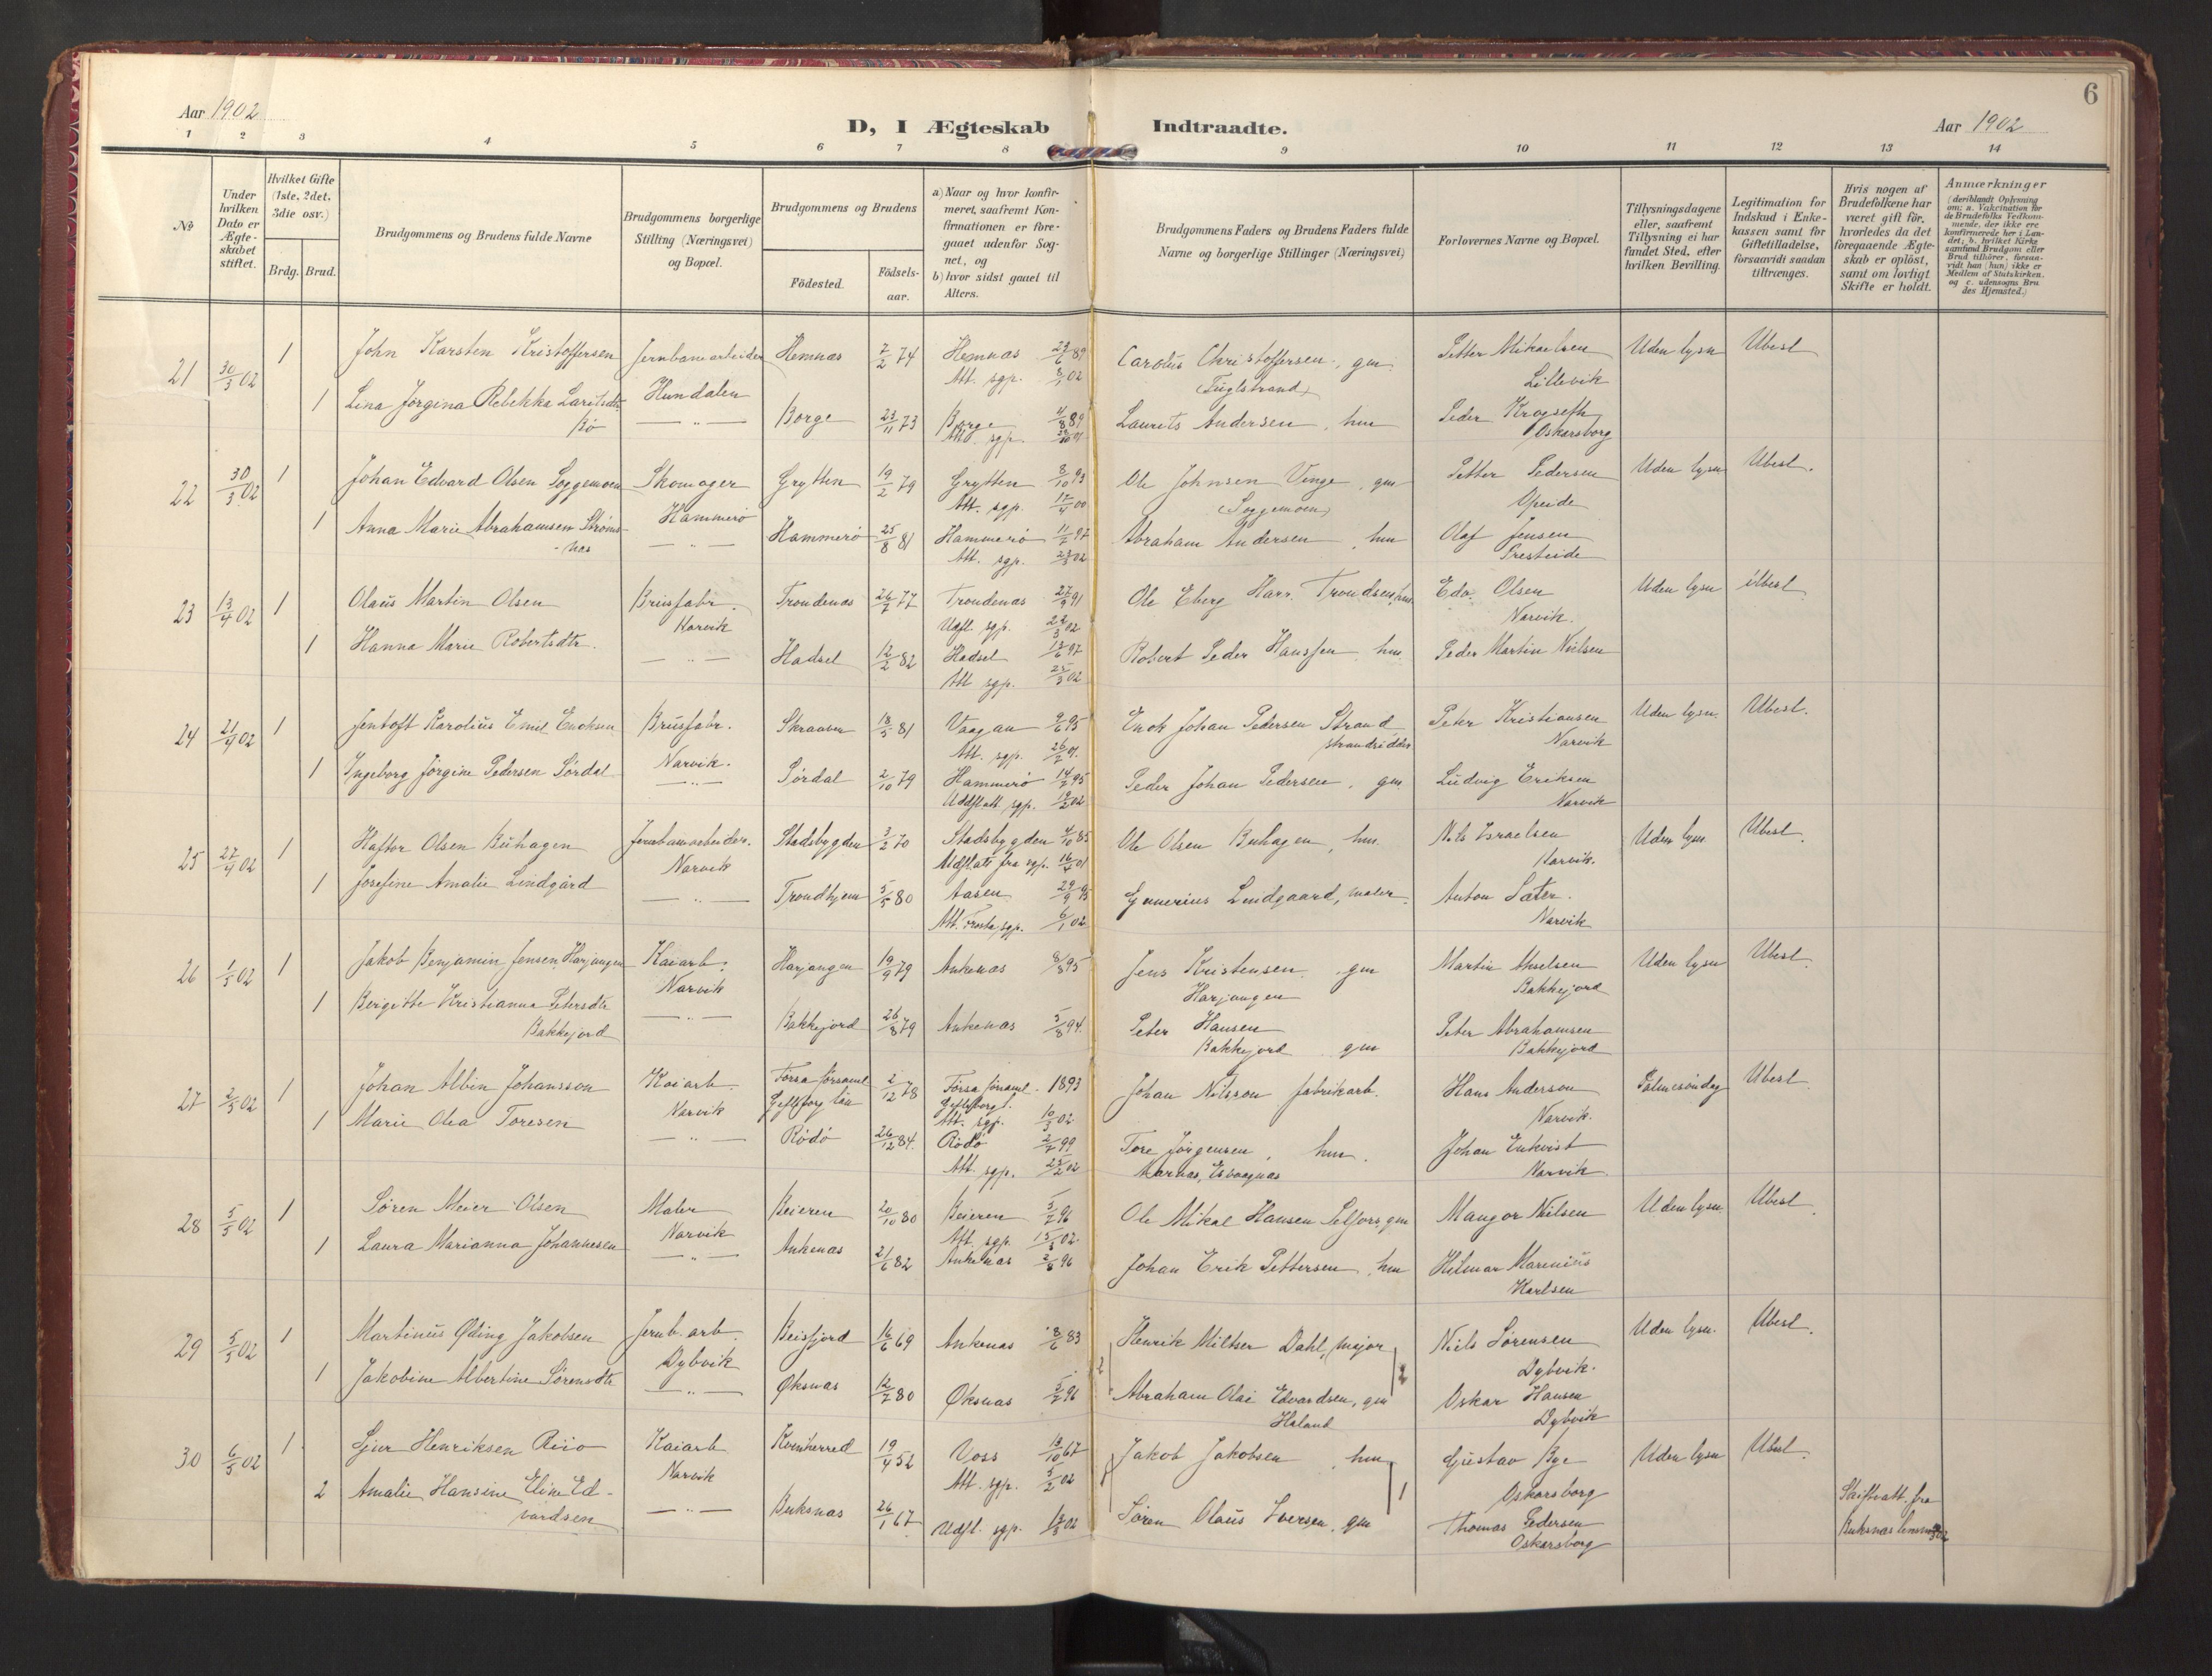 6
Aar 1902
D, I Ægteskab Indtraadte.
Aar 1902
1 2 3 4 5 6 7 8 9 10 11 12 13 14
No
Under hvilken Dato er Ægteskabet stiftet.
Hvilket Gifte (1ste, 2det, 3die osv.)
Brdg. Brud.
Brudgommens og Brudens fulde Navne
Brudgommens borgerlige Stilling (Næringsvei) og Bopæl.
Brudgommens og Brudens
Födested.
Födsels-aar.
a) Naar og hvor konfirmeret, saafremt Konfirmationen er foregaaet udenfor Sognet, og
b) hvor sidst gaaet til Alters.
Brudgommens Faders og Brudens Faders fulde Navne og borgerlige Stillinger (Næringsvei)
Forlovernes Navne og Bopæl.
Tillysningsdagene eller, saafremt Tillysning ei har fundet Sted, efter hvilken Bevilling.
Legitimation for Indskud i Enkekassen samt for Giftetilladelse, forsaavidt saadan tiltrænges.
Hvis nogen af Brudefolkene har været gift för, hvorledes da det foregaaende Ægteskab er oplöst, samt om lovligt Skifte er holdt.
Anmærkninger (deriblandt Oplysning om: a. Vakcination for de Brudefolks Vedkommende, der ikke ere konfirmerede her i Landet; b. hvilket Kirkesamfund Brudgom eller Brud tilhörer, forsaavidt han (hun) ikke er Medlem af Statskirken, og c. udensogns Brudes Hjemsted.)
21 30/3 02 1 John Karsten Kristoffersen Jernbanearbeider Hemnæs 7/2 74 Hemnæs Carolus Christoffersen, gm. Petter Mikaelsen Uden lysn Ubest
Hundalen Att. sgp. (Fuglstrand) Lillevik
1 Lina Jørgina Rebekka Lauritsdtr. — " — Borge 23/11 73 Borge Laurits Andersen, hm Peder Krogseth
Bø Att. sgp. Oskarsborg
22 30/3 02 1 Johan Edvard Olsen Soggemoen Skomager Grytten 19/2 79 Grytten 8/10 93 Ole Johnsen Venge, gm Petter Pedersen Uden lysn Ubest.
Hammerø Att. sgp. (Soggemoen) Opeide
1 Anna Marie Abrahamsen Strøms- — " — Hammerø 25/8 81 Hammerø Abraham Andersen, hm Olaf Jensen
-næs Att. sgp. Presteide
23 13/4 02 1 Olaus Martin Olsen Brusfabr. Trondenæs 26/7 77 Trondenæs 27/9 91 Edv. Olsen Uden lysn Ubest
Narvik Udfl. sgp. Narvik.
1 Hanna Marie Robertsdtr. — " — Hadsel 12/2 82 Hadsel Robert Peder Hanssen, hm Peder Martin Nielsen
Att sgp.
24 21/4 02 1 Jentoft Karolius Emil Enoksen Brusfabr. Skraaven 18/5 81 Vaagan Enok Johan Pedersen Strand Peter Kristiansen Uden lysn. Ubest.
Narvik. Att. sgp. strandsidder Narvik
1 Ingeborg Jørgine Pedersen Sørdal — " — Sørdal 2/10 79 Hammerø Peder Johan Pedersen, gm Ludvig Eriksen
sgp. Narvik
25 27/4 02 1 Haftor Olsen Buhagen Jernbanearbeider. Stadsbygden 3/2 70 Stadsbygden Ole Olsen Buhagen, hm. Nils Israelsen Uden lysn Ubest.
Narvik Udflatt fra sgp. Narvik.
1 Josefine Amalie Lindgård — " — Trondhjem 5/5 80 Aasen Lindgaard, maler. Anton Sæter.
Att. Frosta sgp. 6/1 02 Narvik
26 1/5 02 1 Jakob Benjamin Jensen, Harjangen Kaiarb. Harjangen 19/9 79 Ankenæs 8/8 95 Jens Kristensen gm Martin Akselsen Uden lysn Ubest.
Narvik Harjangen Bakkejord
1 Bergitte Kristianna Petersdtr — " — Bakkejord 26/8 79 Ankenæs 5/8 94. Peter Hansen Peter Abrahamsen
Bakkejord Bakkejord gm Bakkejord
27 2/5 02 1 Johan Albin Johansson Kaiarb. Forsa församl. 2/12 78 Forsa församl. 1893 Johan Nilsson fabrikarb. Hans Anderson Palmesöndag Ubest
Narvik Gefleborg län Gefleborgl. Att. sgp. Narvik.
1 Marie Olea Toresen — " — Rödö 26/12 84. Rödö Tore Jörgensen, hm. Johan Enkvist
Att. sgp. Narvik
28 5/5 02 1 Søren Meier Olsen Maler Beieren 20/10 80 Beieren 5/7 96 Ole Mikal Hansen Selfors, gm Mangor Nilsen Uden lysn Ubest
Narvik Att. sgp.
1 Laura Marianna Johannesen — " — Ankenæs 21/6 82 Ankenæs 2/8 96 Johan Erik Pettersen, hm Hilmar Marenius
Karlsen
29 5/5 02 1 Martinus Øding Jakobsen Jernb. arb. Beisfjord 16/6 69 Ankenæs 8/6 83 Henrik Miltzer Dahl, major Niels Sørensen Uden lysn. Ubest.
Dybvik 2 2 Dybvik.
1 Jakobine Albertine Sörensdtr — " — Øksnæs 12/2 80 Øksnæs 5/7 96 Abraham Olai Edvardsen, gm Oskar Hansen
Haland Dybvik
30 6/5 02 1 Sjur Henriksen Riio Kaiarb Kvinherred 19/4 52 Voss Jakob Jakobsen, hm Gustav Bye Uden lysn Ubest.
Narvik Att. sgp. 5/2 02 1 Oskarsborg
2 Amalie Hansine Eline Ed- — " — Buksnæs 26/1 67 Udfl. sgp. Søren Olaus Iversen, gm Thomas Pedersen Skifteatt. fra
vardsen Oskarsborg Buksnæs